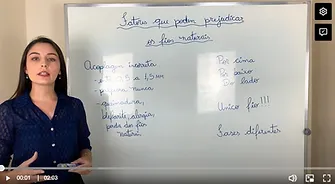 Fatores que podem prejudicar
os fios naturais
Acoplagem incorreta
nunca
queimadura,
alergia,
perda dos fios
naturais
Por cima
Por baixo
Do lado
Único fio!!!
Fases diferentes
00:01
02:03